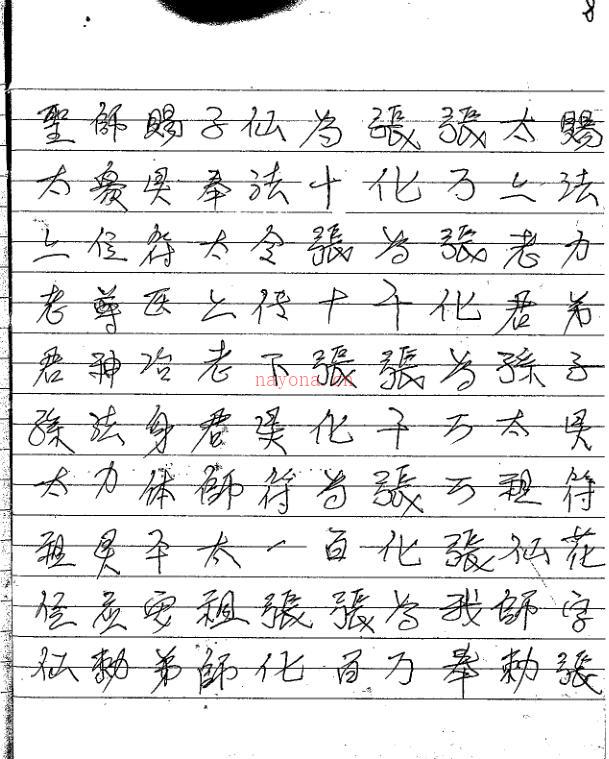 賜法力弟子吳符花字張
太上老君孫太祖仙師勅
張万張化为万万張我奉
張化为千張千張化为万
为十張十張化为百張百
仙法令传下吳符一張化
子奉太上老君師太祖師
賜吳符医治身体平安弟
師侄尊神法力吳灵勅
聖太上老君孫太祖侄仙
8
nayona.cn